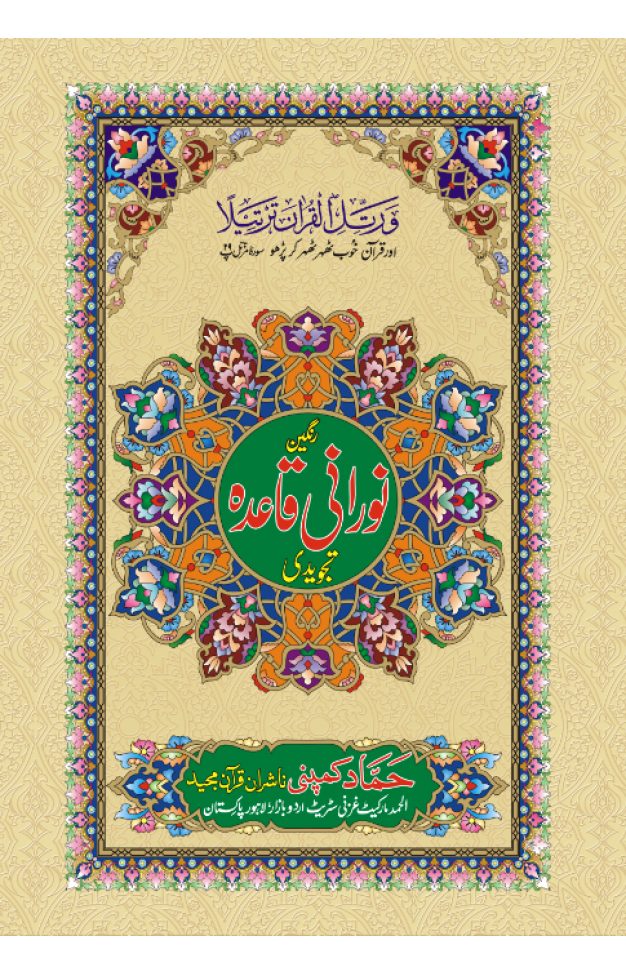 وَرَتِّلِ الْقُرْاٰنَ تَرْتِیْلًا
اور قرآن خُوب ٹھہر ٹھہر کر پڑھو سورۃ مزمل پ ۲۹
رنگین
نورانی قاعدہ
تجویدی
حمّاد کمپنی ناشران قرآن مجید
الحمد مارکیٹ غزنی سٹریٹ اردو بازار لاہور پاکستان